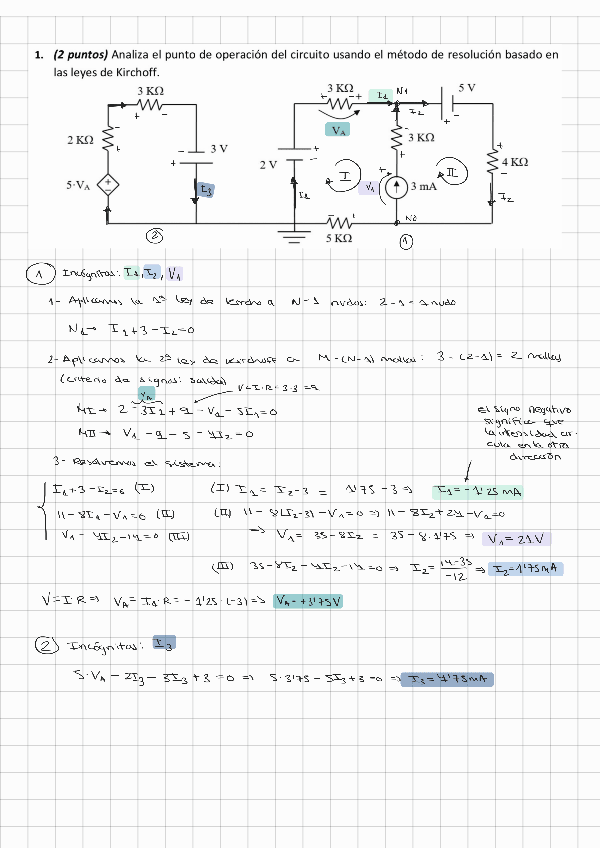 1. (2 puntos) Analiza el punto de operación del circuito usando el método de resolución basado en
las leyes de Kirchoff.
3 KΩ
2 KΩ
3 V
5·VA
I3
2
3 KΩ
I1
N1
5 V
VA
I2
3 KΩ
2 V
I
V1
3 mA
II
4 KΩ
I1
I2
5 KΩ
N0
1
1 Incógnitas: I1, I2, V1
1- Aplicamos la 1ª ley de Kirchoff a N-1 nudos: 2-1=1 nudo
N1→ I1+3-I2=0
2- Aplicamos la 2ª ley de Kirchoff a M-(N-1) mallas: 3-(2-1)=2 mallas
(criterio de signos: salida)
V=I·R=3·3=9
VA
MI→ 2-3I1+9-V1-5I1=0
MII→ V1-9-5-4I2=0
El signo negativo
significa que
la intensidad cir-
cula en la otra
dirección
3- Resolvemos el sistema:
I1+3-I2=0 (I) (I) I1=I2-3 = 1'75-3 ⇒ I1=-1'25 mA
11-8I1-V1=0 (II) (II) 11-8(I2-3)-V1=0 ⇒ 11-8I2+24-V1=0
V1-4I2-14=0 (III) ⇒ V1=35-8I2 = 35-8·1'75 ⇒ V1=21V
(III) 35-8I2-4I2-14=0 ⇒ I2=14-35/-12 ⇒ I2=1'75mA
V=I·R ⇒ VA=I1·R=-1'25·(-3) ⇒ VA=+3'75V
2 Incógnitas: I3
5·VA-2I3-3I3+3=0 ⇒ 5·3'75-5I3+3=0 ⇒ I3=4'75mA